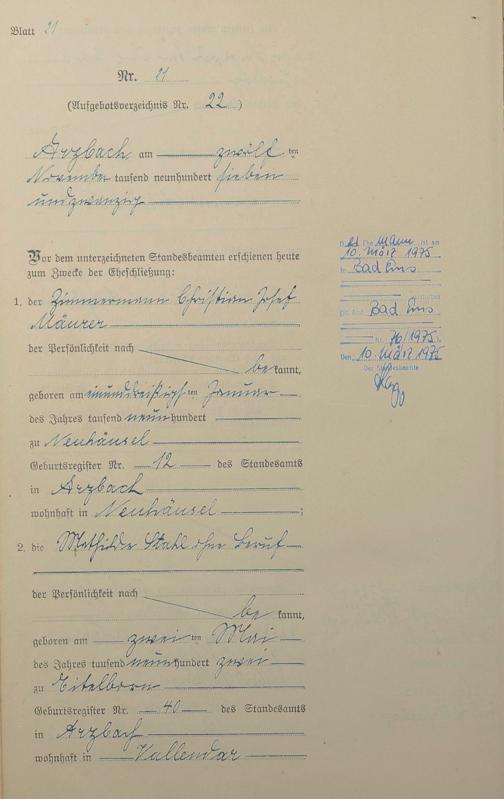 Blatt 21
Nr. 21
(Aufgebotsverzeichnis Nr. 22)
Arzbach am zwölf ten
November tausend neunhundert sieben
undzwanzig
Vor dem unterzeichneten Standesbeamten erschienen heute
zum Zwecke der Eheschließung:
1. der Zimmermann Christian Josef
Mäurer
der Persönlichkeit nach
be kannt,
geboren am einunddreißigs ten Januar
des Jahres tausend neun hundert
zu Neuhäusel
Geburtsregister Nr. 12 des Standesamts
in Arzbach
wohnhaft in Neuhäusel ;
2. die Mathilde Stahl ohne Beruf
der Persönlichkeit nach
be kannt,
geboren am zwei ten Mai
des Jahres tausend neun hundert zwei
zu Eitelborn
Geburtsregister Nr. 40 des Standesamts
in Arzbach
wohnhaft in Vallendar
Mann ist am
10. März 1975
in Bad Ems
Bad Ems
Nr. 76/1975
Den 10. März 1975
Der Standesbeamte